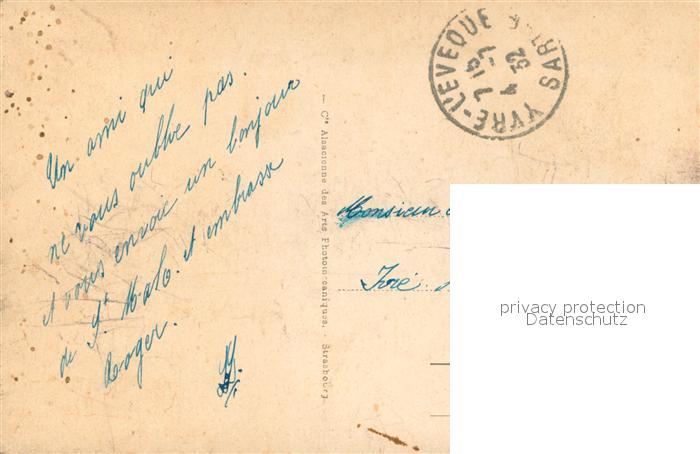 Un ami qui
ne vous oublie pas.
et vous envoie un bonjour
de St Malo. et embrasse
Roger.
— Cie Alsacienne des Arts Photomécaniques. - Strasbourg
YVRE-L'EVEQUE SARTHE
7 10
4 -7
52
Monsieur
Yvré
privacy protection
Datenschutz